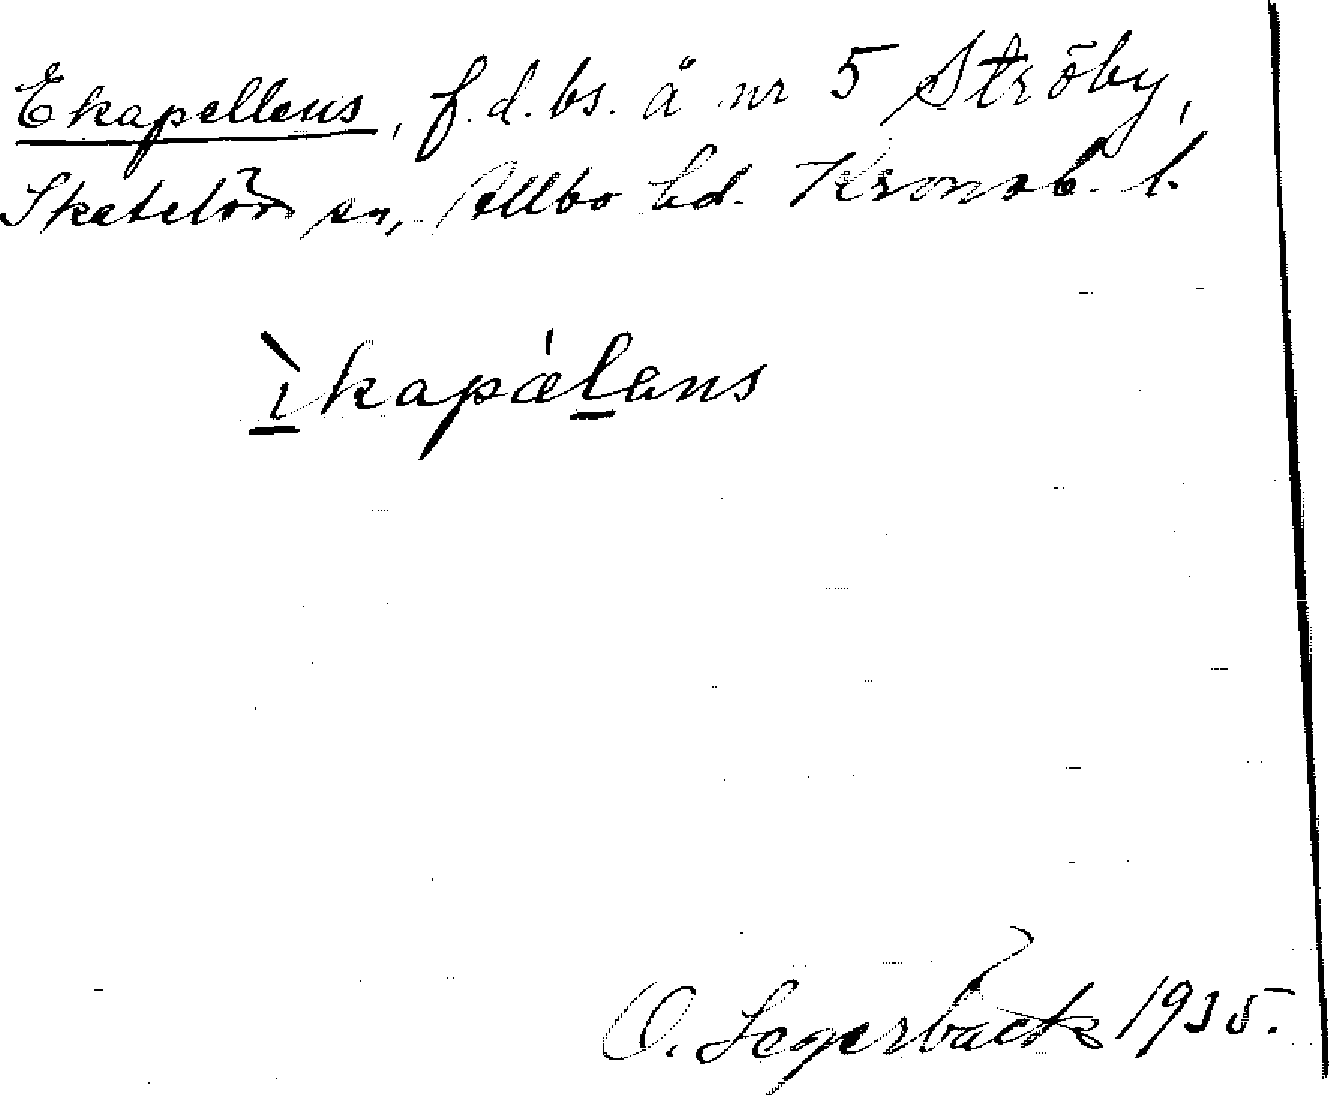 Ekapellens, f.d. bs. å nr 5 Ströby,
Skatelöv sn, Allbo hd. Kronob. l.
ìkapǽlens
O. Segerbäck 1935.